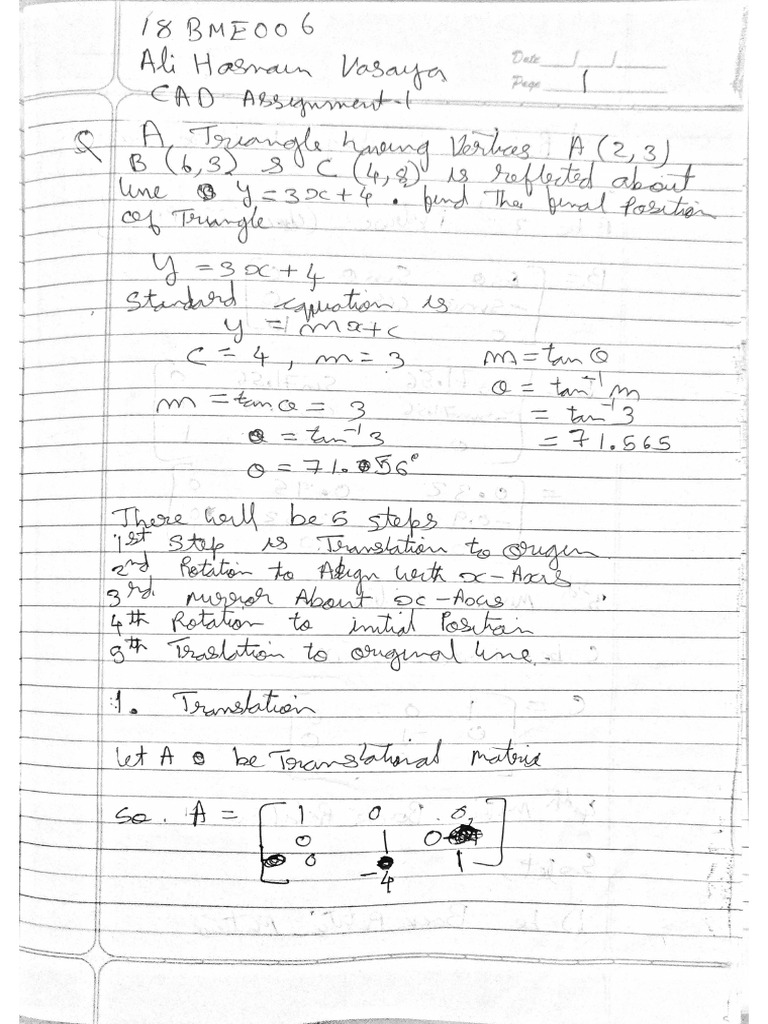 18BME006
Ali Hasnain Vasaya
Date ___/___/___
Page 1
CAD Assignment-1
Q A Triangle having Vertices A (2,3)
B (6,3) & C (4,8) is reflected about
line y=3x+4. find The final Position
of Triangle
y = 3x+4
Standard equation is
y = mx+c
c = 4, m = 3 m = tan θ
θ = tan⁻¹ m
m = tan θ = 3 = tan⁻¹ 3
θ = tan⁻¹ 3 = 71.565
θ = 71.56°
There will be 5 steps
1st Step is Translation to origin
2nd Rotation to Align with x-Axis
3rd mirror About x-Axis
4th Rotation to initial Position
5th Traslation to original line.
1. Translation
let A be Translational matrix
so. A = [ 1 0 0
0 1 0
0 -4 1 ]